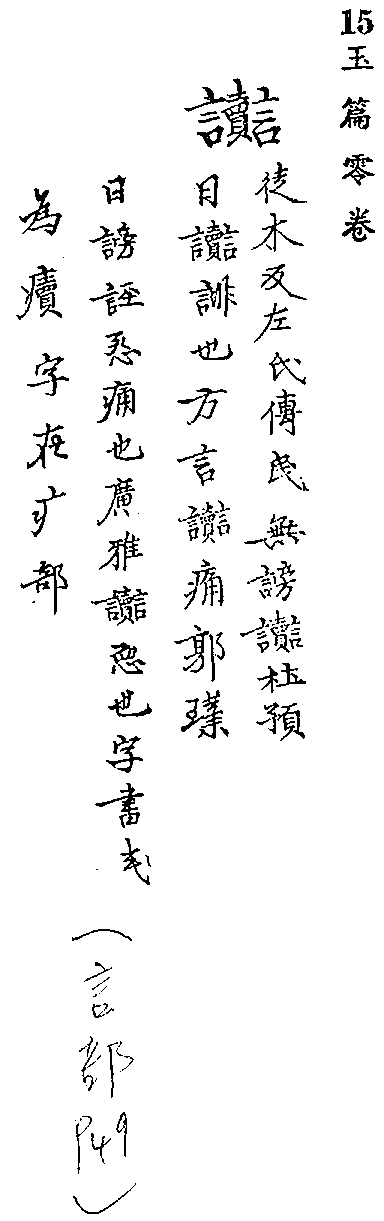 15玉篇零卷
讟
徒木反左氏傳民無謗讟杜預
曰讟誹也方言讟痛郭璞
曰謗誣怨痛也廣雅讟惡也字書或
為字在疒部
(言部P49)